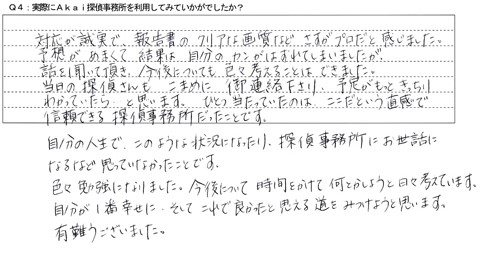 Q4：実際にAkai探偵事務所を利用してみていかがでしたか？
対応が誠実で、報告書のクリアな画質など さすがプロだと感じました。
予想が めまくて 結果は 自分の カンがはずれてしまいましたが、
話を聞いて頂き、今後についても 色々考えることは できました。
当日の探偵さんも こまめに 御連絡下さり、予兆がもっときっちり
わかっていたら と思います。ひとつ当たっていたのは、ここだという直感で
信頼できる 探偵事務所だったことです。
自分の人生で、このような状況になったり、探偵事務所にお世話に
なるなど思っていなかったことです。
色々勉強になりました。今後について 時間をかけて 何とかしようと日々考えています。
自分が1番幸せに、そして これで良かったと思える道を みつけようと思います。
有難うございました。